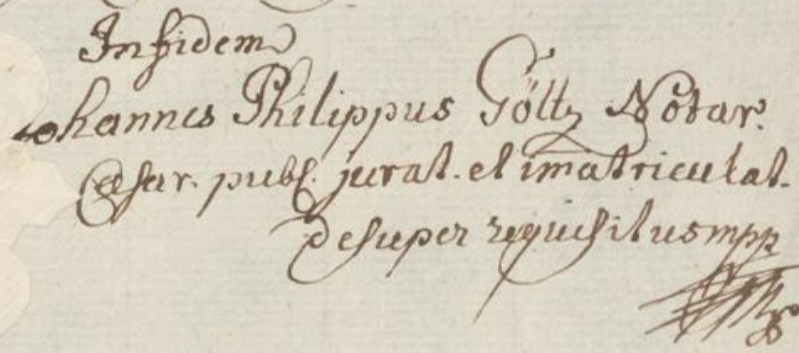 In fidem
Johannes Philippus Göltz Notar.
Cæsar. publ. jurat. et im̄atriculat.
desuper requisitus mpp